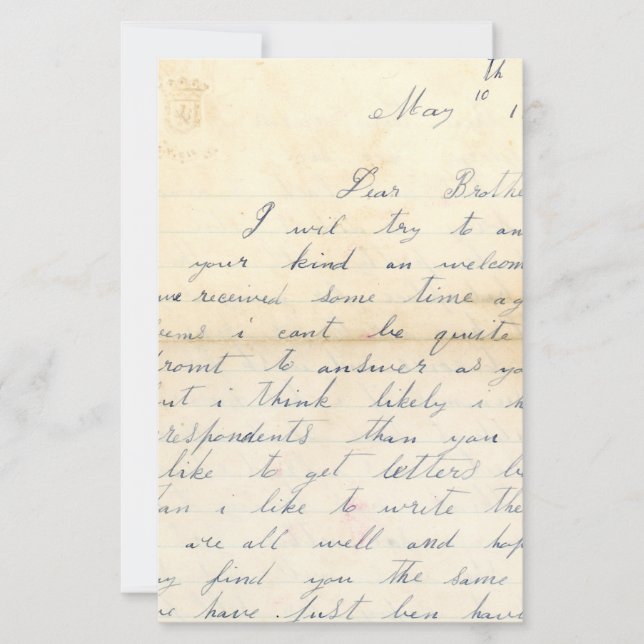 May 10th 1
Dear Brothe
I wil try to an
your kind an welcom
we received some time ag
eems i cant be quite
romt to answer as yo
ut i think likely i h
respondents than you
like to get letters b
an i like to write the
are all well and hop
y find you the same
e have Just ben havi